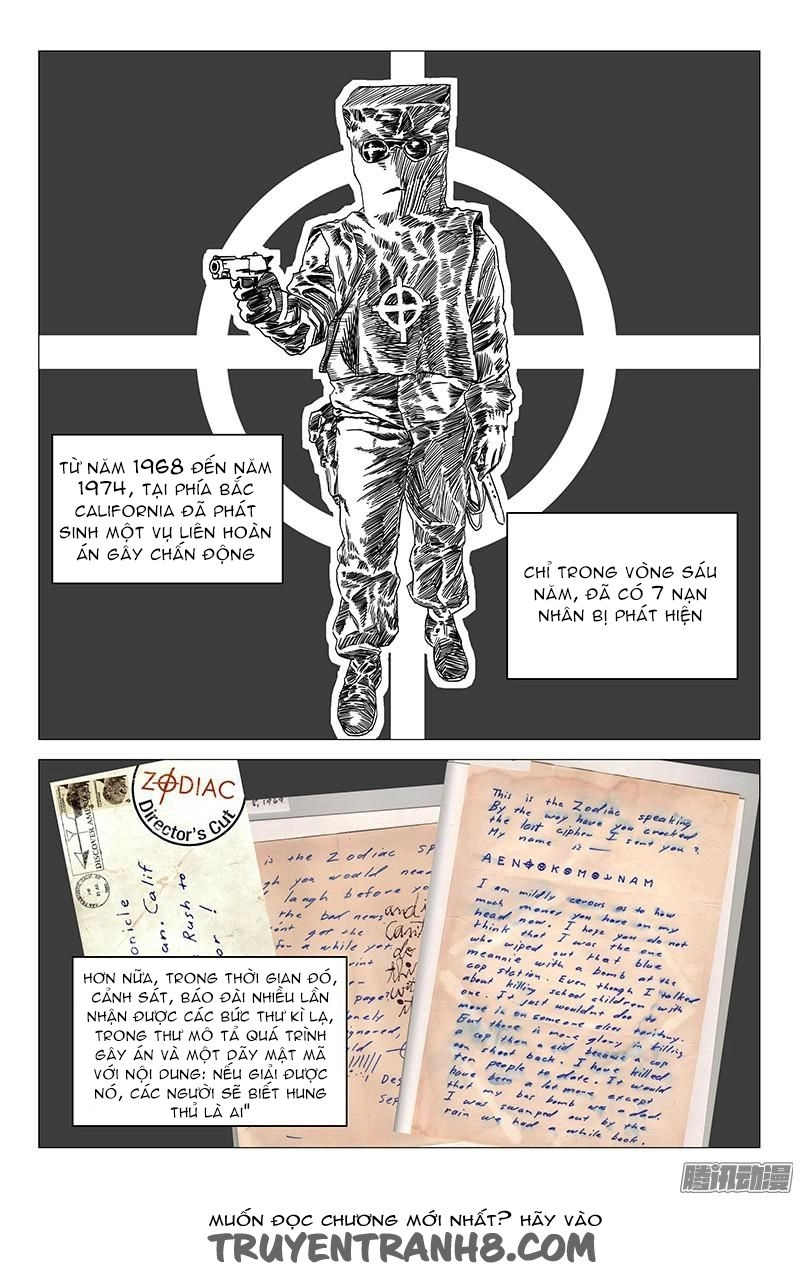 TỪ NĂM 1968 ĐẾN NĂM
1974, TẠI PHÍA BẮC
CALIFORNIA ĐÃ PHÁT
SINH MỘT VỤ LIÊN HOÀN
ÁN GÂY CHẤN ĐỘNG
CHỈ TRONG VÒNG SÁU
NĂM, ĐÃ CÓ 7 NẠN
NHÂN BỊ PHÁT HIỆN
ZODIAC
Director's Cut
DISCOVER AMERICA
onicle
an. Calif
Rush to
or !
is the Zodiac sp
you would need
laugh before yo
the bad news
got the
for a while yet
This is the Zodiac speaking
By the way have you cracked
the last cipher I sent you?
My name is —
AEN⌖⊗K⊗M⊗⅃NAM
I am mildly cerous as to how
much money you have on my
head now. I hope you do not
think that I was the one
who wiped out that blue
meannie with a bomb at the
cop station. Even though I talked
about killing school children with
one. It just wouldnt doo to
move in on someone elses teritory.
But there is more glory in killing
a cop then a cid because a cop
can shoot back. I have killed
ten people to date. It would
have been a lot more except
that my bus bomb was a dud.
I was swamped out by the
rain we had a while back.
HƠN NỮA, TRONG THỜI GIAN ĐÓ,
CẢNH SÁT, BÁO ĐÀI NHIỀU LẦN
NHẬN ĐƯỢC CÁC BỨC THƯ KÌ LẠ,
TRONG THƯ MÔ TẢ QUÁ TRÌNH
GÂY ÁN VÀ MỘT DÃY MẬT MÃ
VỚI NỘI DUNG: NẾU GIẢI ĐƯỢC
NÓ, CÁC NGƯỜI SẼ BIẾT HUNG
THỦ LÀ AI"
腾讯动漫
MUỐN ĐỌC CHƯƠNG MỚI NHẤT? HÃY VÀO
TRUYENTRANH8.COM